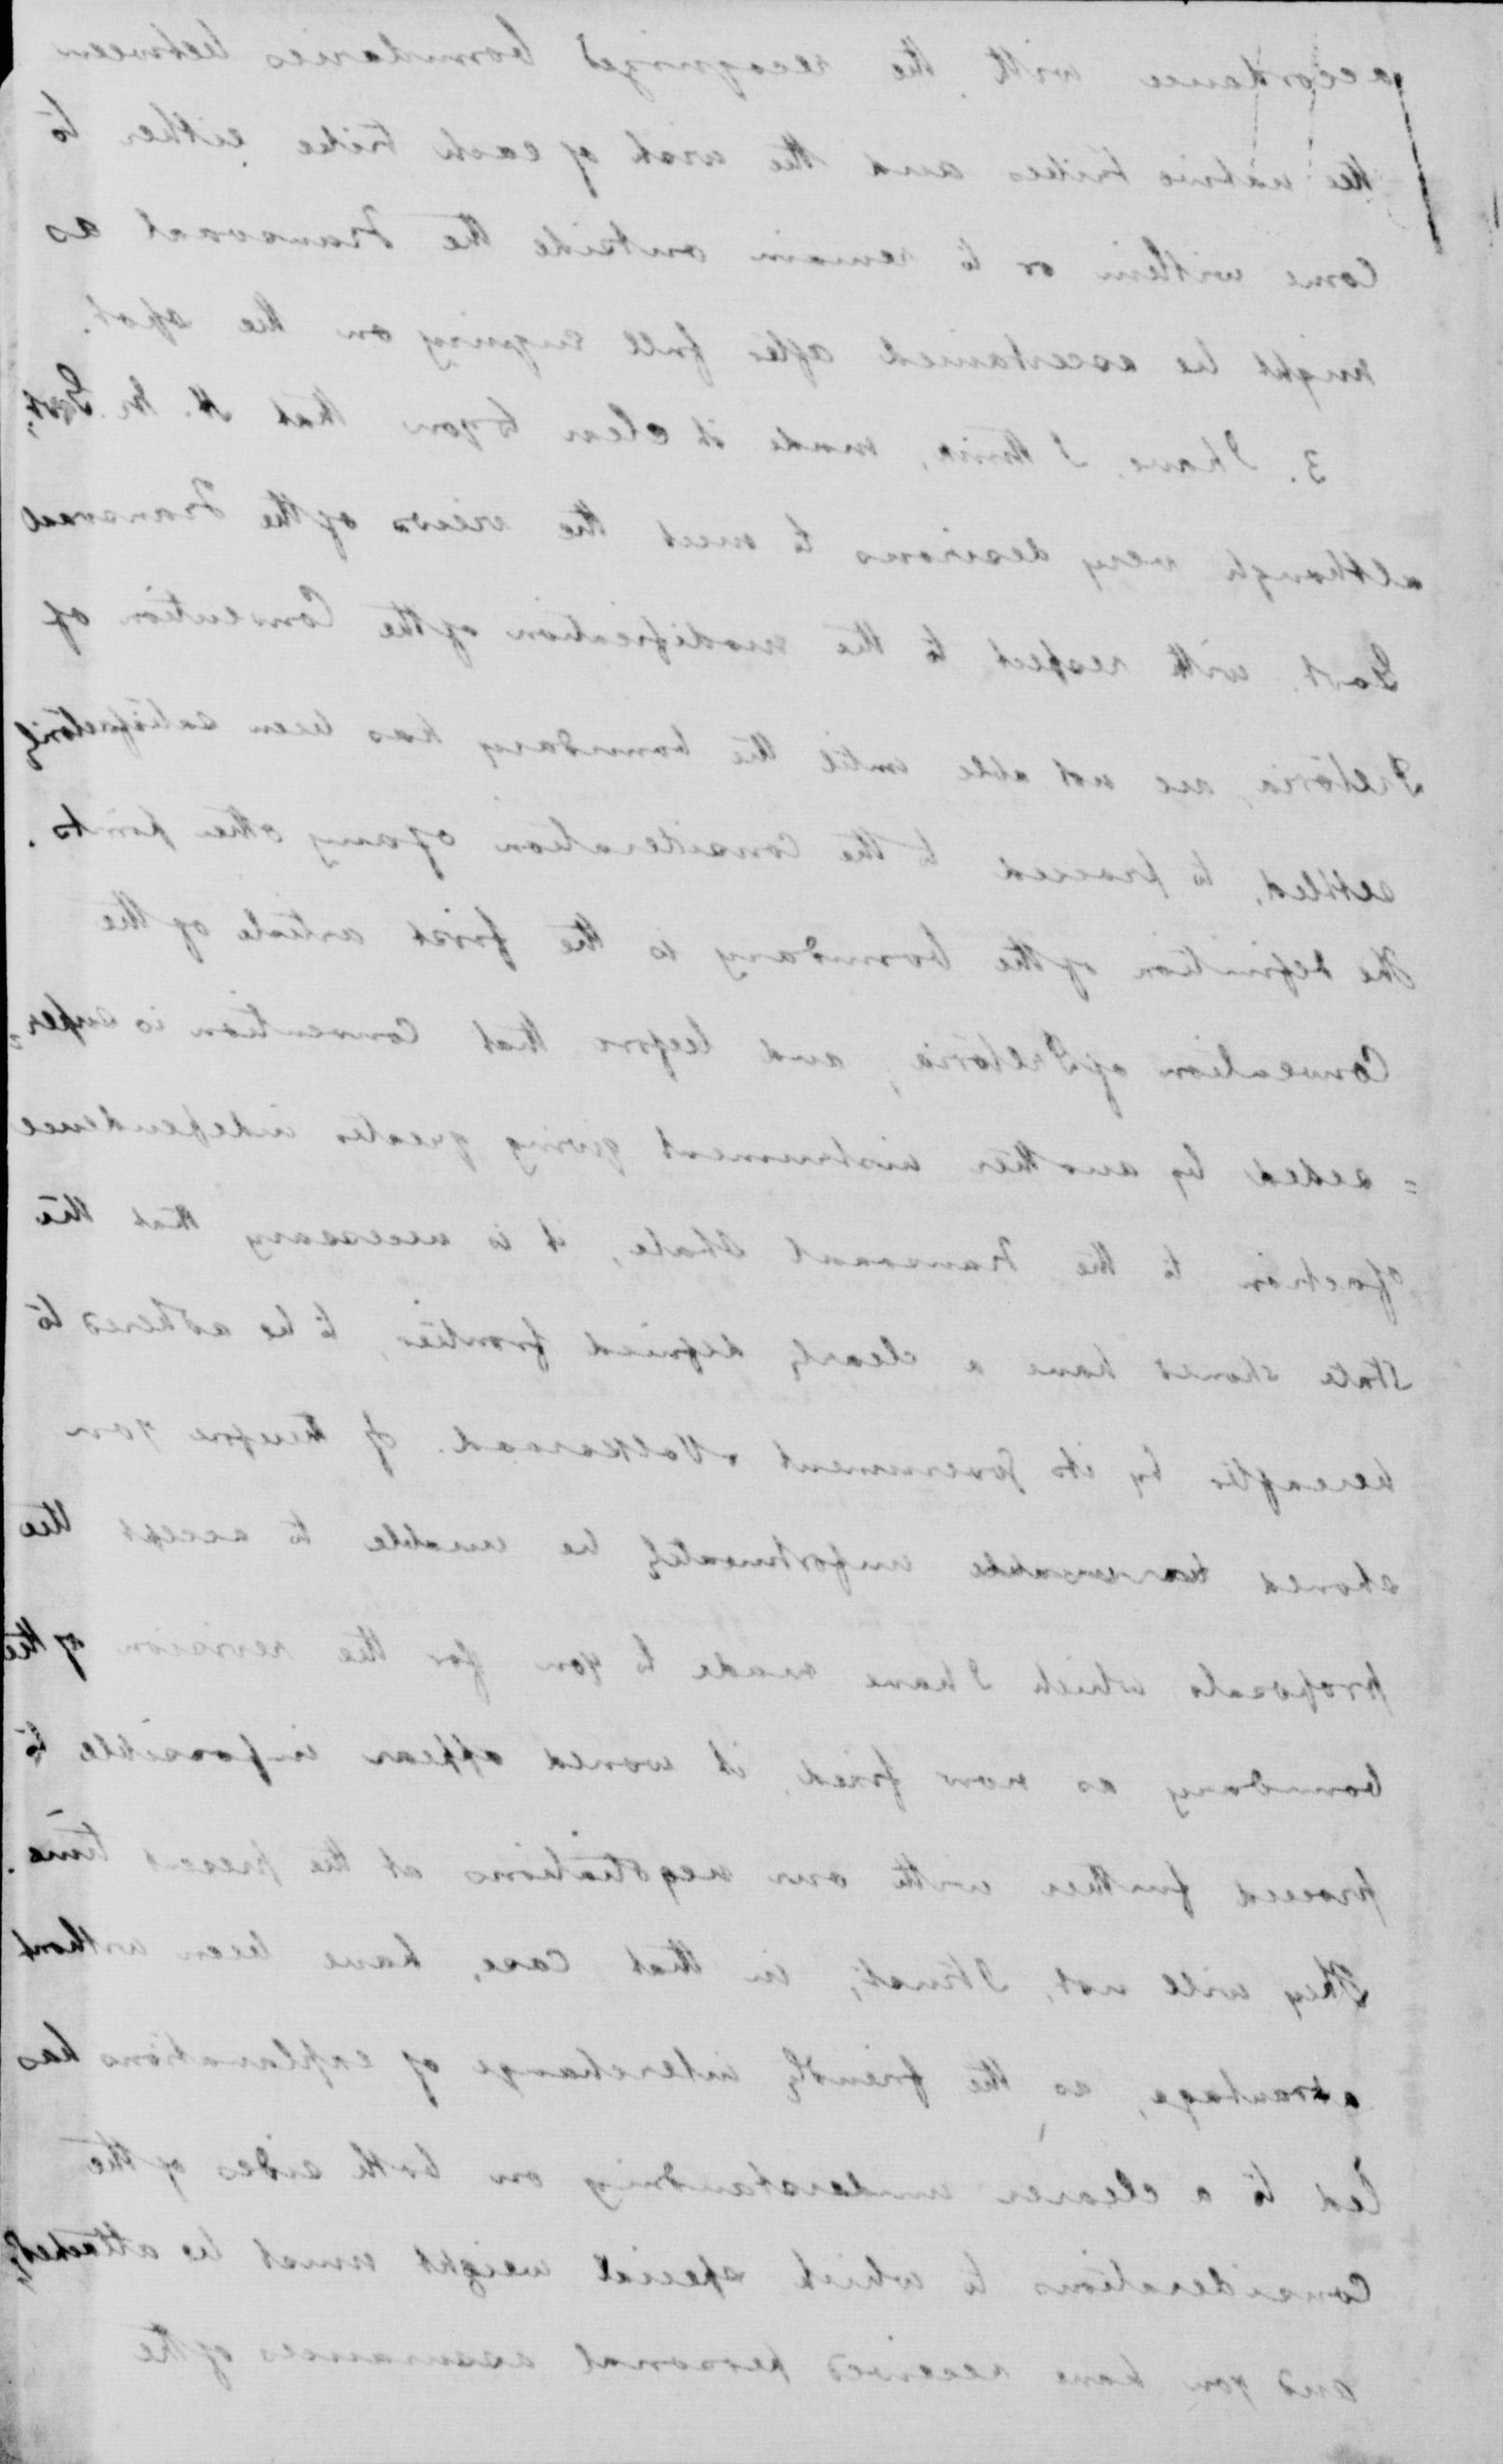 accordance with the recognized boundaries between
the native tribes and the wish of each tribe either to
come within or to remain outside the Transvaal as
might be ascertained after full enquiry on the spot.
3. I have, I think, made it clear to you that H. M. Govt,
although very desirous to meet the views of the Transvaal
Govt. with respect to the modification of the Convention of
Pretoria, are not able until the boundary has been satisfactorily
settled, to proceed to the consideration of any other points.
The definition of the boundary is the first article of the
Convention of Pretoria, and before that Convention is super=
=seded by another instrument giving greater independence
of action to the Transvaal State, it is necessary that the
State should have a clearly defined frontier, to be adhered to
hereafter by its Government & Volksraad. If therefore you
should unfortunately be unable to accept the
proposals which I have made to you for the revision of the
boundary as now fixed, it would appear impossible to
proceed further with our negotiations at the present time.
They will not, I trust, in that case, have been without
advantage, as the friendly interchange of explanations has
led to a clearer understanding on both sides of the
considerations to which special weight must be attached,
and you have received personal assurances of the